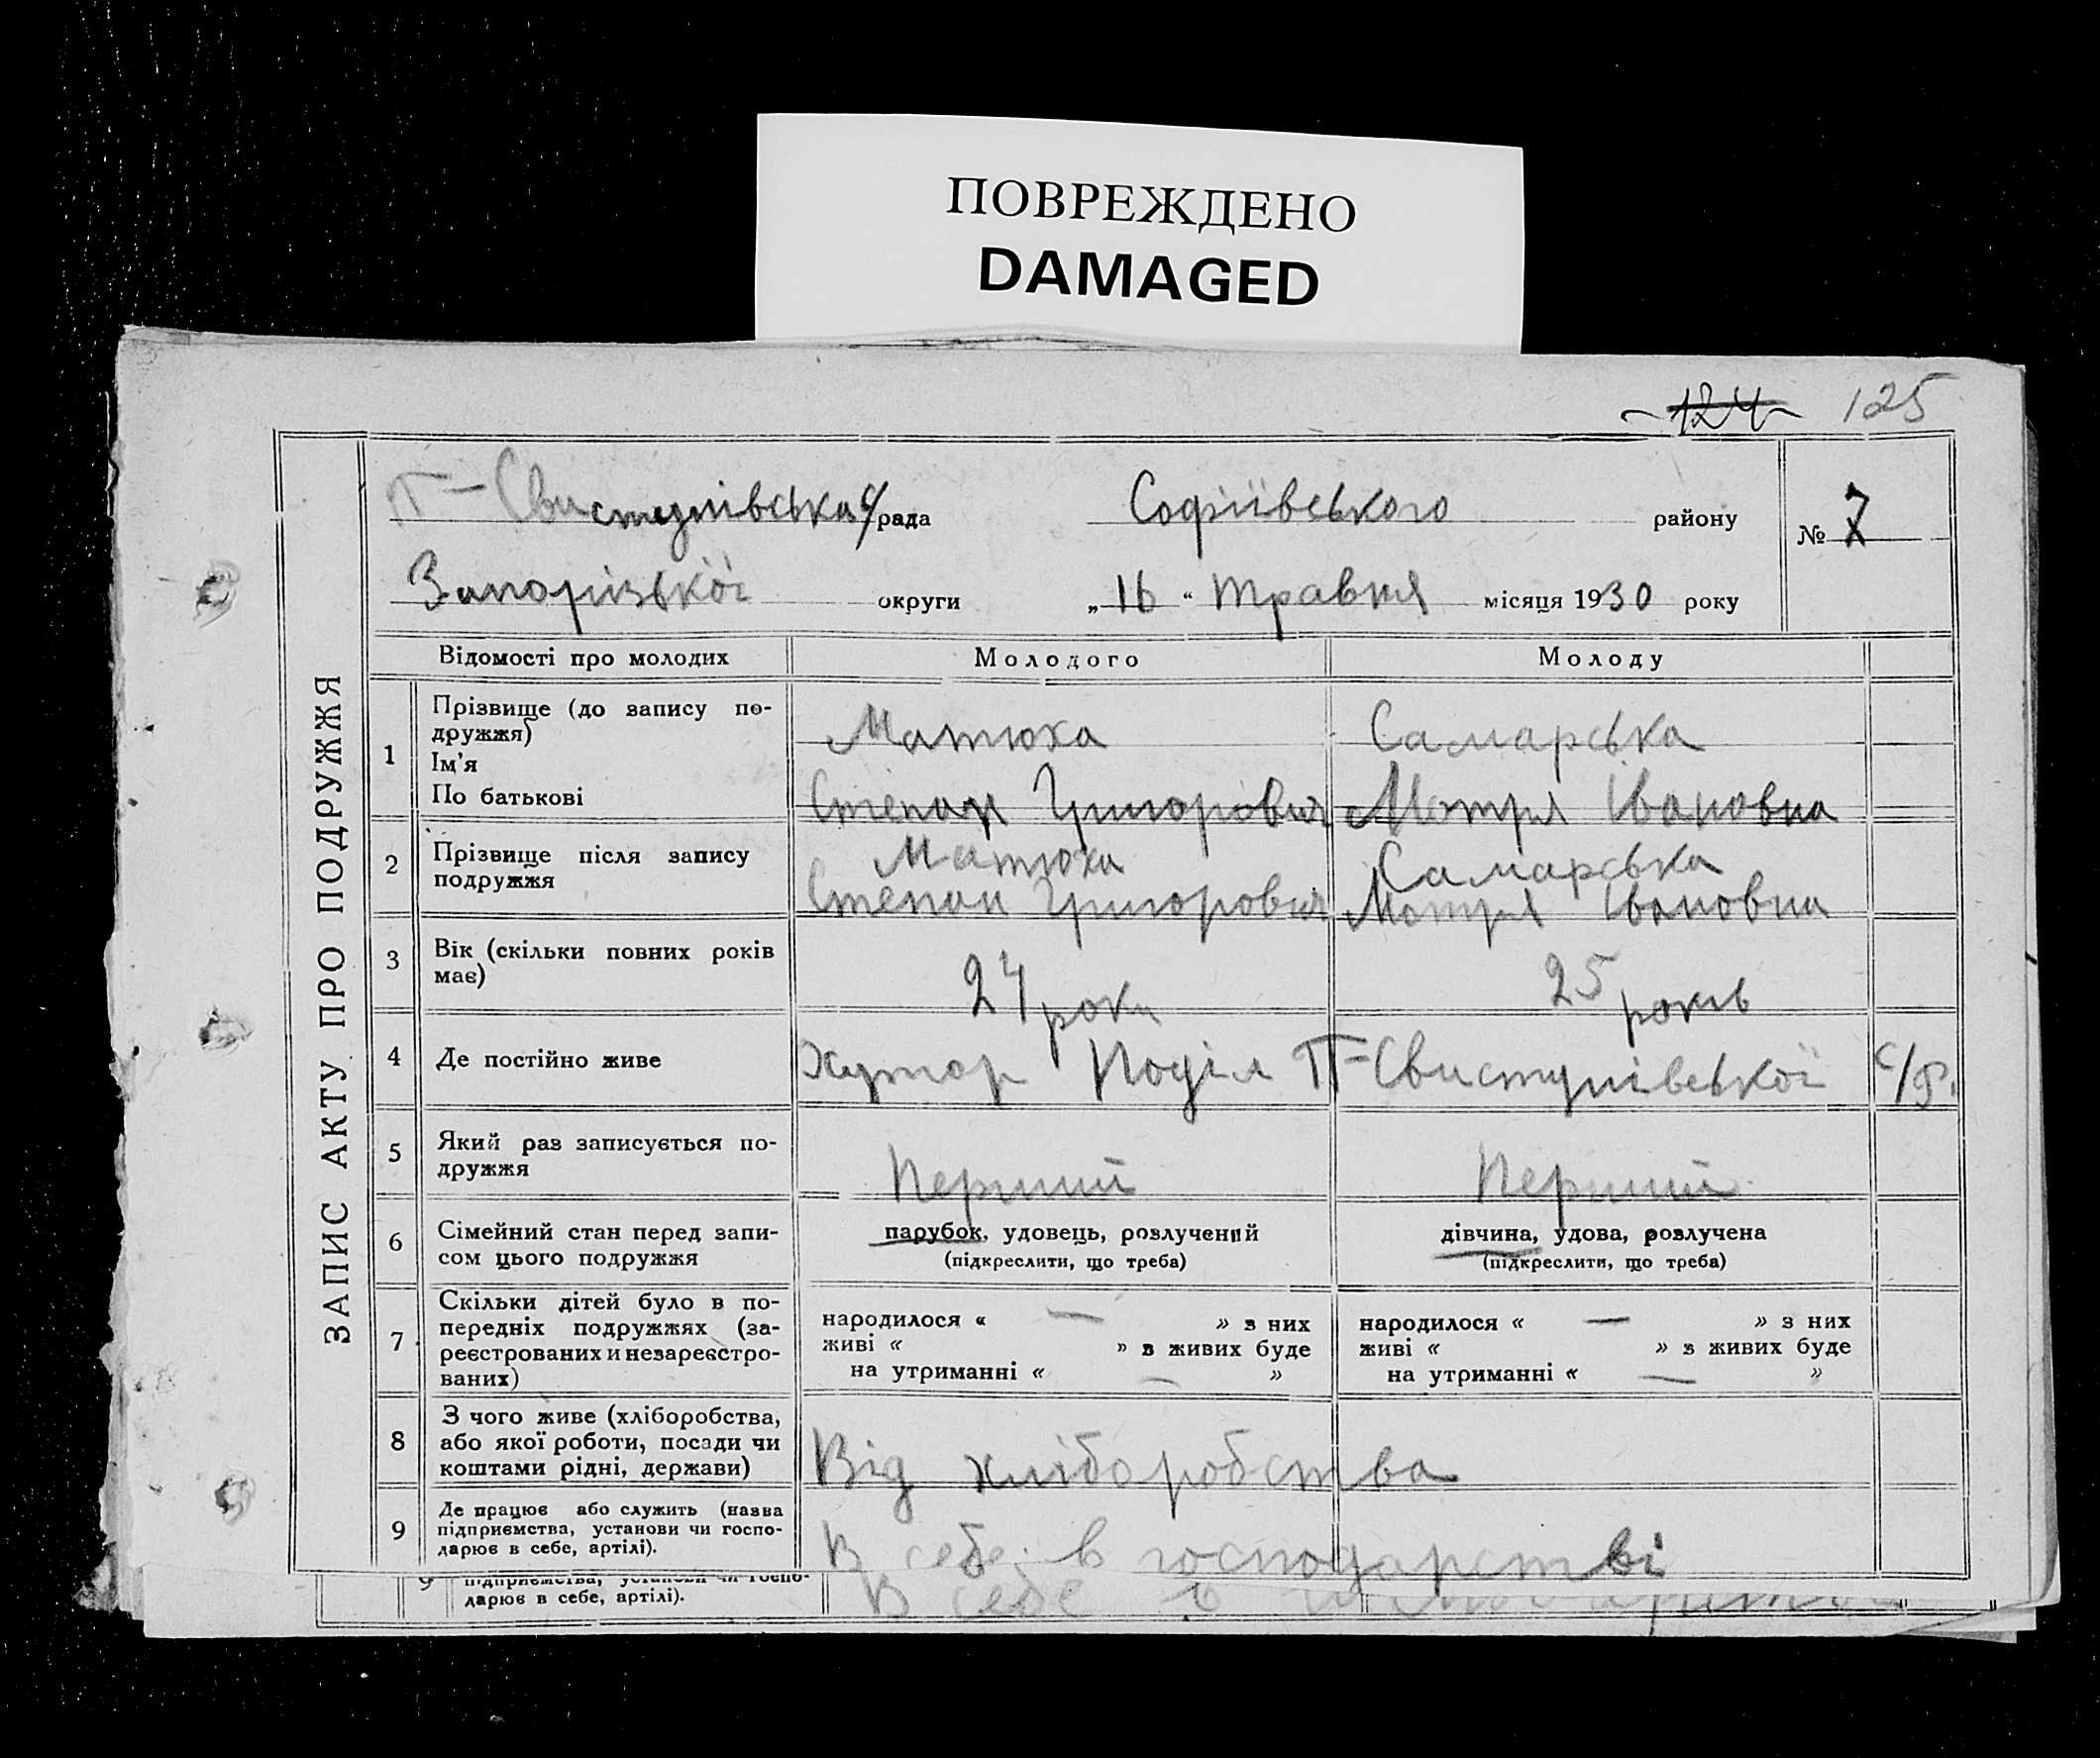 ПОВРЕЖДЕНО
DAMAGED
124 125
П-Свистунівська с/рада Софіївського району № 7
Запорізької округи „ 16 “ травня місяця 1930 року
ЗАПИС АКТУ ПРО ПОДРУЖЖЯ
Відомості про молодих Молодого Молоду
1 Прізвище (до запису по-
дружжя) Матюха Самарська
Ім'я
По батькові Степан Григорович Мотря Івановна
2 Прізвище після запису Матюха Самарська
подружжя Степан Григорович Мотря Івановна
3 Вік (скільки повних років
має) 24 роки 25 років
4 Де постійно живе Хутор Поділ П-Свистунівської с/р.
5 Який раз записується по-
дружжя Перший Перший
6 Сімейний стан перед запи- парубок, удовець, розлучений дівчина, удова, розлучена
сом цього подружжя (підкреслити, що треба) (підкреслити, що треба)
7 Скільки дітей було в по- народилося « — » з них народилося « — » з них
передніх подружжях (за- живі « » з живих буде живі « » з живих буде
реєстрованих и незареєстро- на утриманні « — » на утриманні « — »
ваних)
8 З чого живе (хліборобства,
або якої роботи, посади чи
коштами рідні, держави) Від хліборобства
9 Де працює або служить (назва
підприємства, установи чи госпо-
дарює в себе, артілі). В себе в господарстві
9 підприємства, установи чи госпо-
дарює в себе, артілі). В себе в